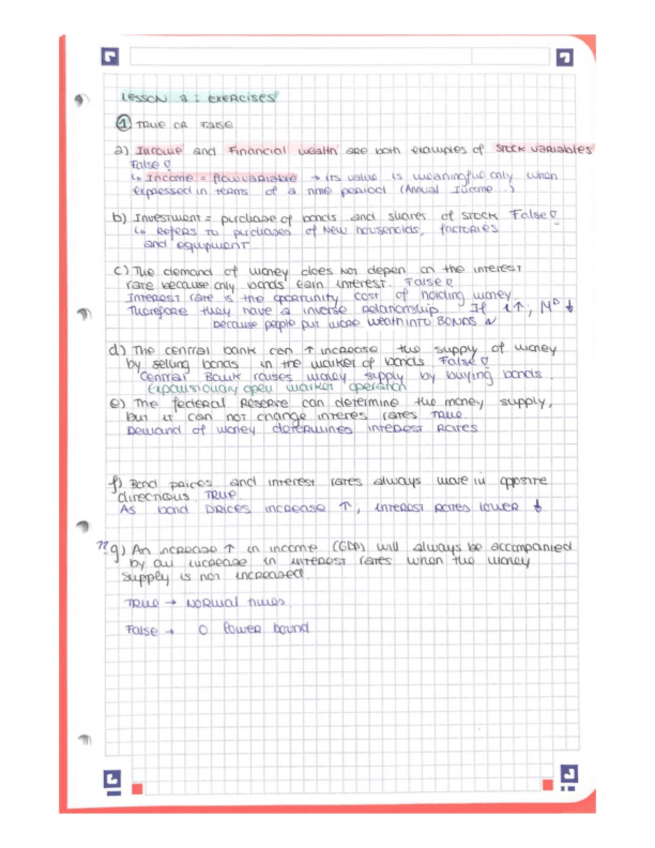 LESSON 3 : EXERCISES
① TRUE OR FALSE
a) Income and Financial wealth are both examples of stock variables
False
↳ Income = flow variable → its value is meaningful only when
expressed in terms of a time period (Annual Income...)
b) Investment = purchase of bonds and shares of stock False
↳ Refers to purchases of new households, factories
and equipment
c) The demand of money does not depen on the interest
rate because only bonds earn interest. False
Interest rate is the opportunity cost of holding money
Therefore they have a inverse relationship. If i↑, Mᴰ ↓
because people put more wealth into BONDS
d) The central bank can ↑ increase the supply of money
by selling bonds in the market of bonds False
Central Bank raises money supply by buying bonds.
Expansionary open market operation
e) The federal Reserve can determine the money supply,
but it can not change interes rates TRUE
Demand of money determines interest rates
f) Bond prices and interest rates always move in opposite
directions TRUE
As bond prices increase ↑, interest rates lower ↓
?? g) An increase ↑ in income (GDP) will always be accompanied
by an increase in interest rates when the money
supply is not increased
TRUE → NORMAL times
False → 0 lower bound